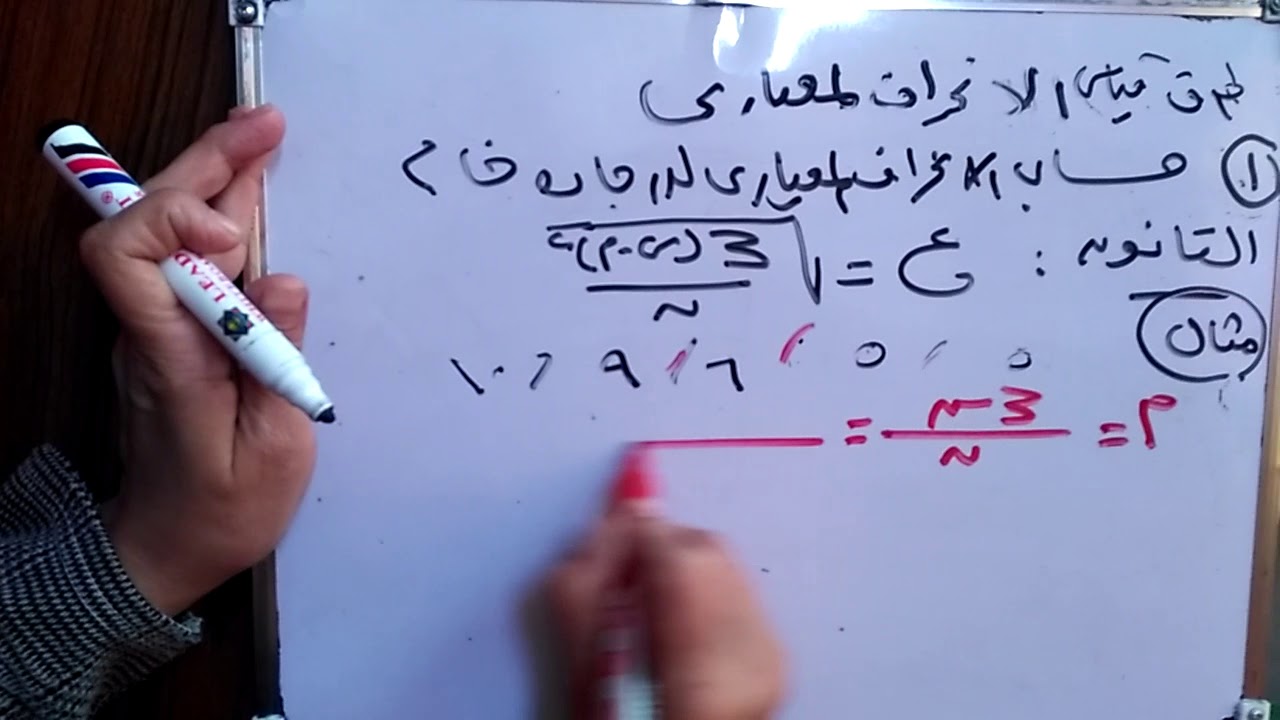 طرق قياس الانحراف المعيارى
١ حساب الانحراف المعيارى لدرجات خام
القانون : ع = √ Σ(س-م)٢ / ن
مثال
٥ ، ٥ ، ٦ ، ٩ ، ١٠
م = Σس / ن =
LEAD